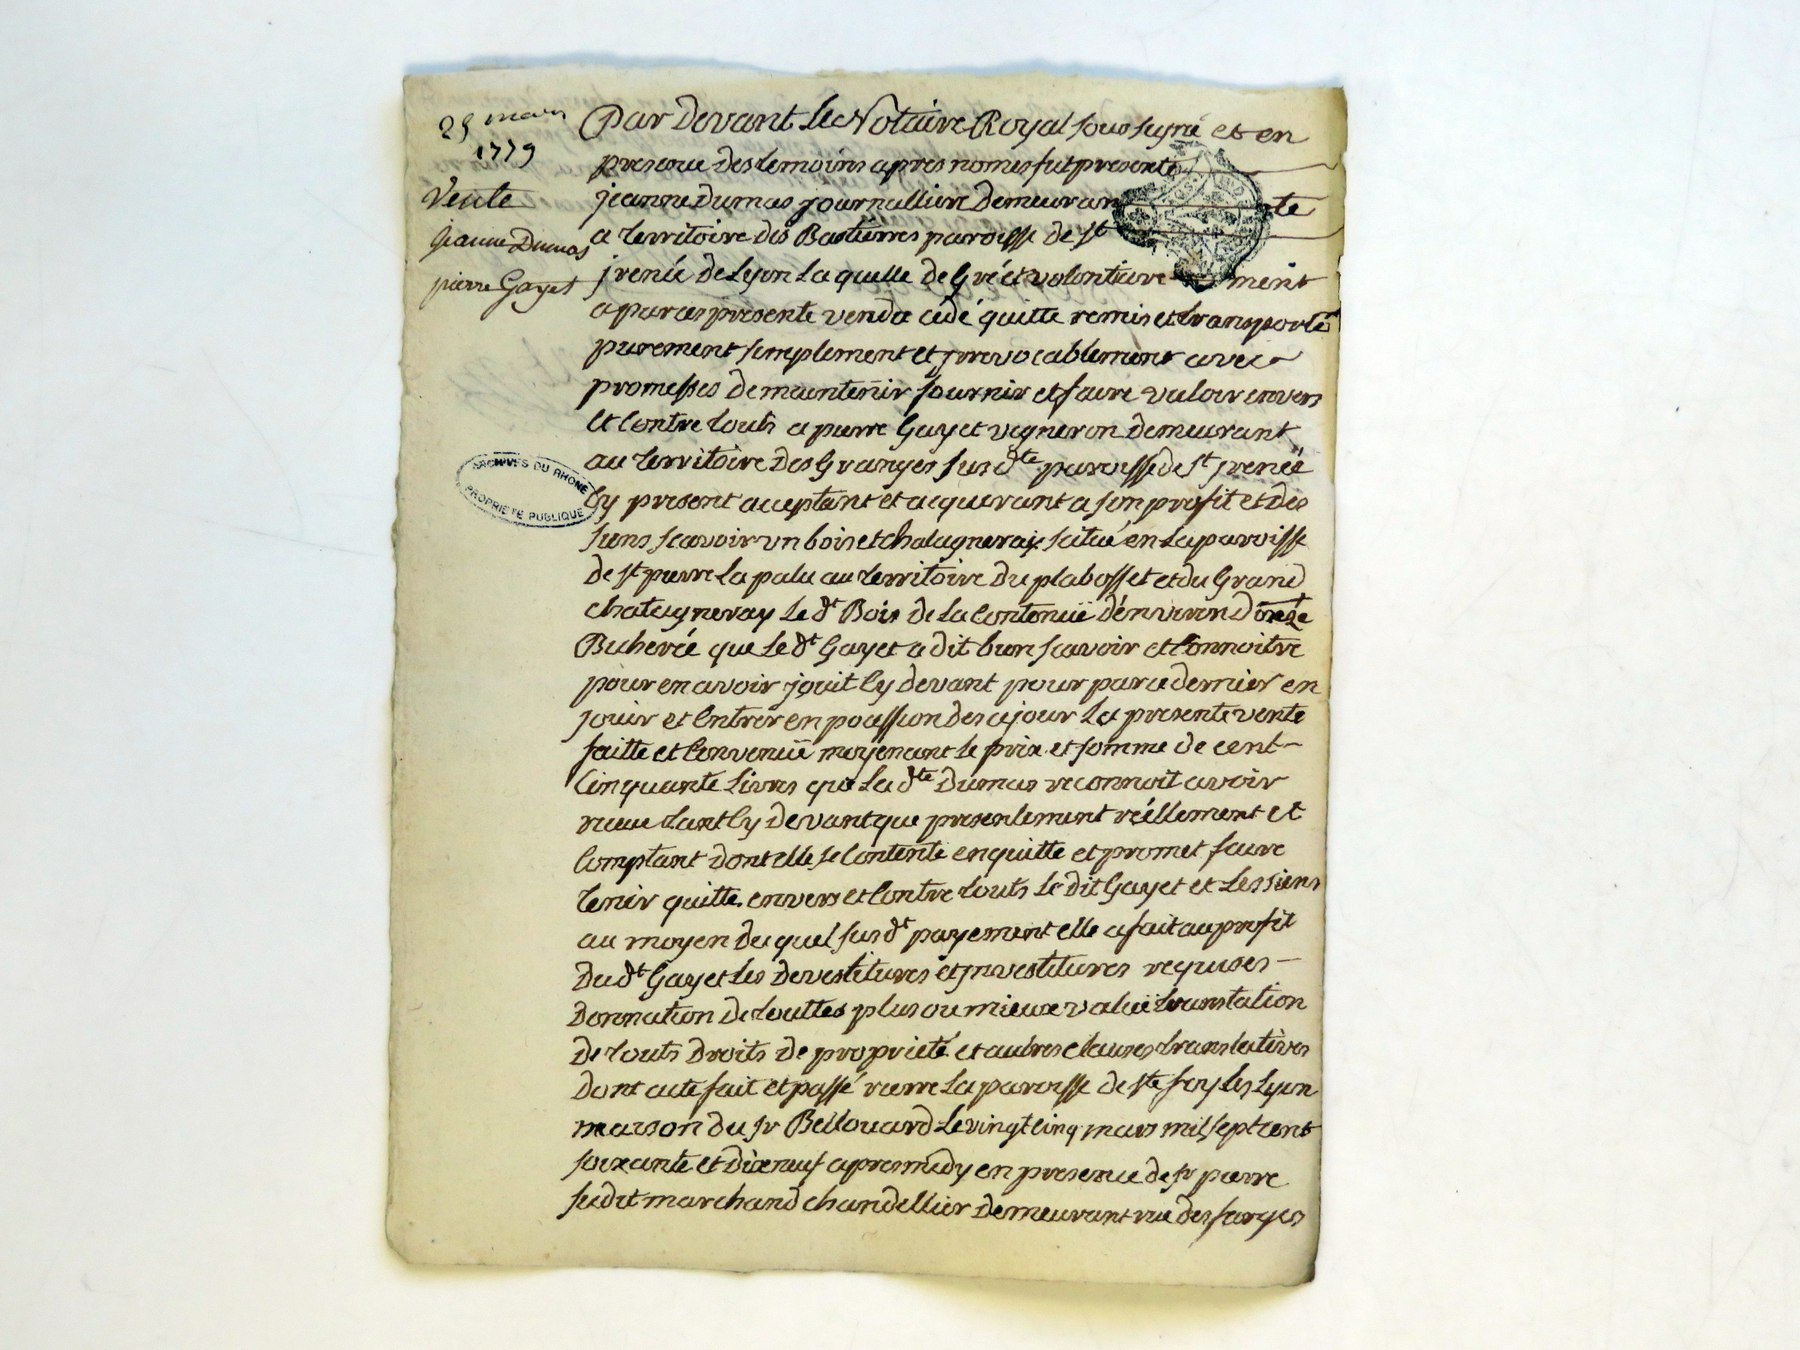 25 mars
1779
Vente
Jeanne Dumas
pierre Gayet
ARCHIVES DU RHONE
PROPRIETE PUBLIQUE
Par Devant Le Notaire Royal soussigné et en
presence des temoins apres nomes fut presente
jeanne Dumas journalliere Demeurante
a territoire des Bastierres paroisse de st
jrenée de Lyon Laquelle de Gré et volontairement
a par ces presente vend a cedé quitte remis et transporté
purement simplement et jrrevocablement avec
promesses De maintenir fournir et faire valoir envers
et Contre touts a pierre Gayet vigneron demeurant
au territoire des Granges susdte paroisse de st jrenée
Cy present acceptant et acquerant a son profit et des
siens scavoir un bois et chatagneray situé en La paroisse
de st pierre La palu au territoire Du plabosset et du Grand
chatagneray Le dt Bois de La Contenuë d'environ d'onze
Bicherée que Le dt Gayet a dit bien scavoir et Connoitre
pour en avoir jouit Cy devant pour par ce dernier en
jouir et Entrer en poession des ce jour La presente vente
faitte et Convenuë moyenant le prix et somme de cent
Cinquante Livres que La dte Dumas reconnoit avoir
recue tant Cy Devant que presentement réellement et
Comptant dont elle se Contente en quitte et promet faire
tenir quitte envers et Contre touts Le dit Gayet et Les siens
au moyen du quel susdt payement elle a fait au profit
Du dt Gayet Les Devestitures et jnvestitures requises
Donnation de touttes plus ou mieux valuë translation
De touts Droits de proprieté et autres clauses translatives
Dont acte fait et passé rierre La paroisse de ste foy Les Lyon
maison du sr Bellouard Le vingt Cinq mars mil sept cent
soixante et Dix neuf apres midy en presence de sr pierre
marchand chandellier Demeurant rue des farges